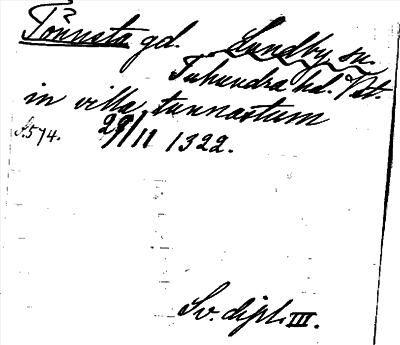 Tönnsta gd. Lundby sn.
Tuhundra hd. Vst.
in villa tunnastum
s. 574. 29/11 1322.
Sv. dipl. III.